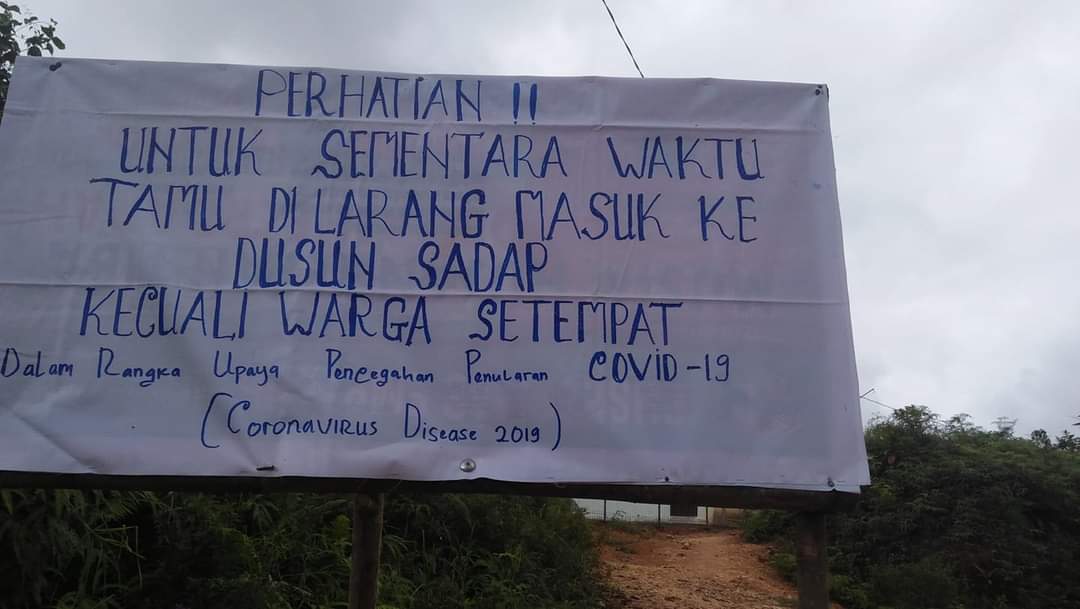 PERHATIAN !!
UNTUK SEMENTARA WAKTU
TAMU DI LARANG MASUK KE
DUSUN SADAP
KECUALI WARGA SETEMPAT
Dalam Rangka Upaya Pencegahan Penularan COVID-19
(Coronavirus Disease 2019)